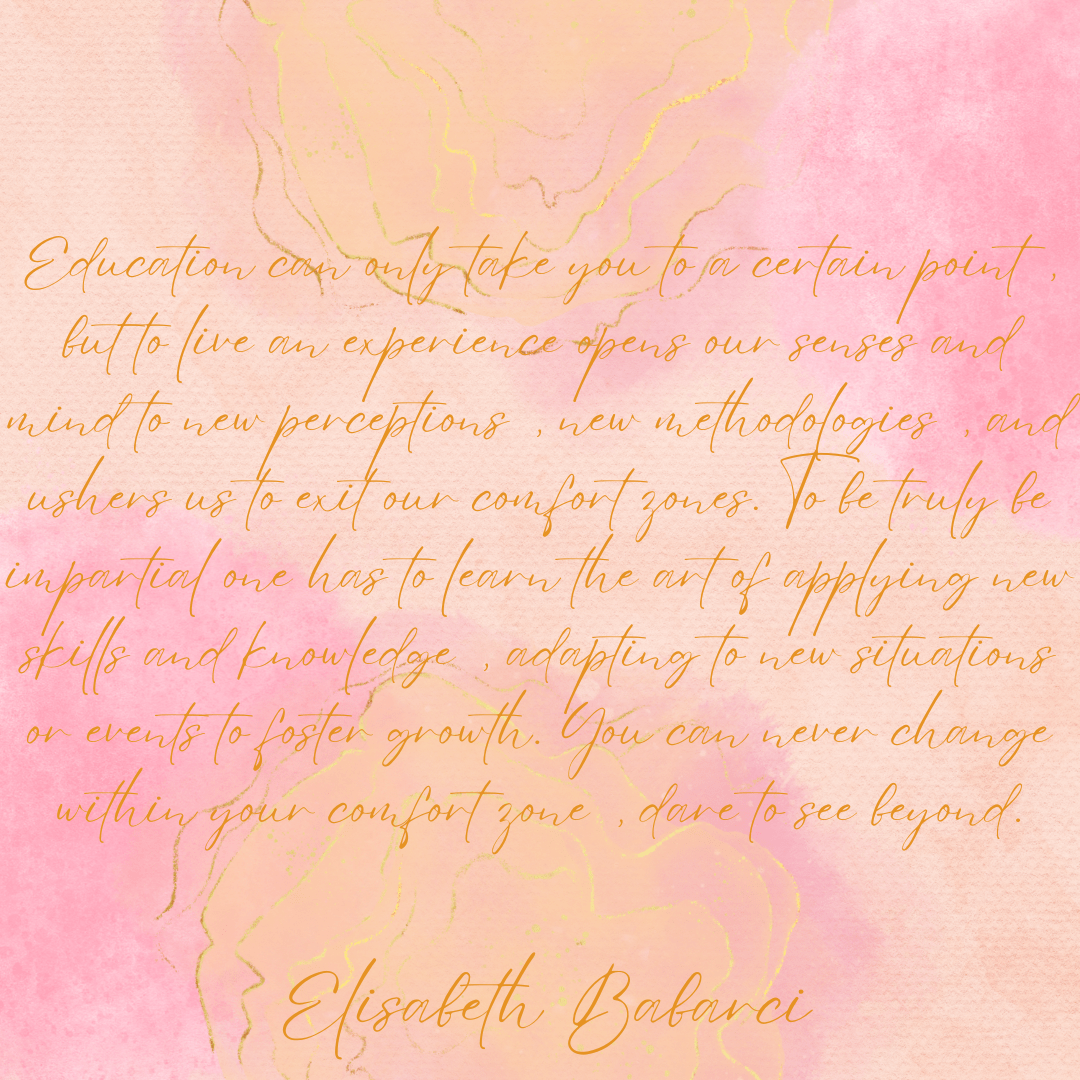 Education can only take you to a certain point ,
but to live an experience opens our senses and
mind to new perceptions , new methodologies , and
ushers us to exit our comfort zones. To be truly be
impartial one has to learn the art of applying new
skills and knowledge , adapting to new situations
or events to foster growth. You can never change
within your comfort zone , dare to see beyond.
Elisabeth Babarci